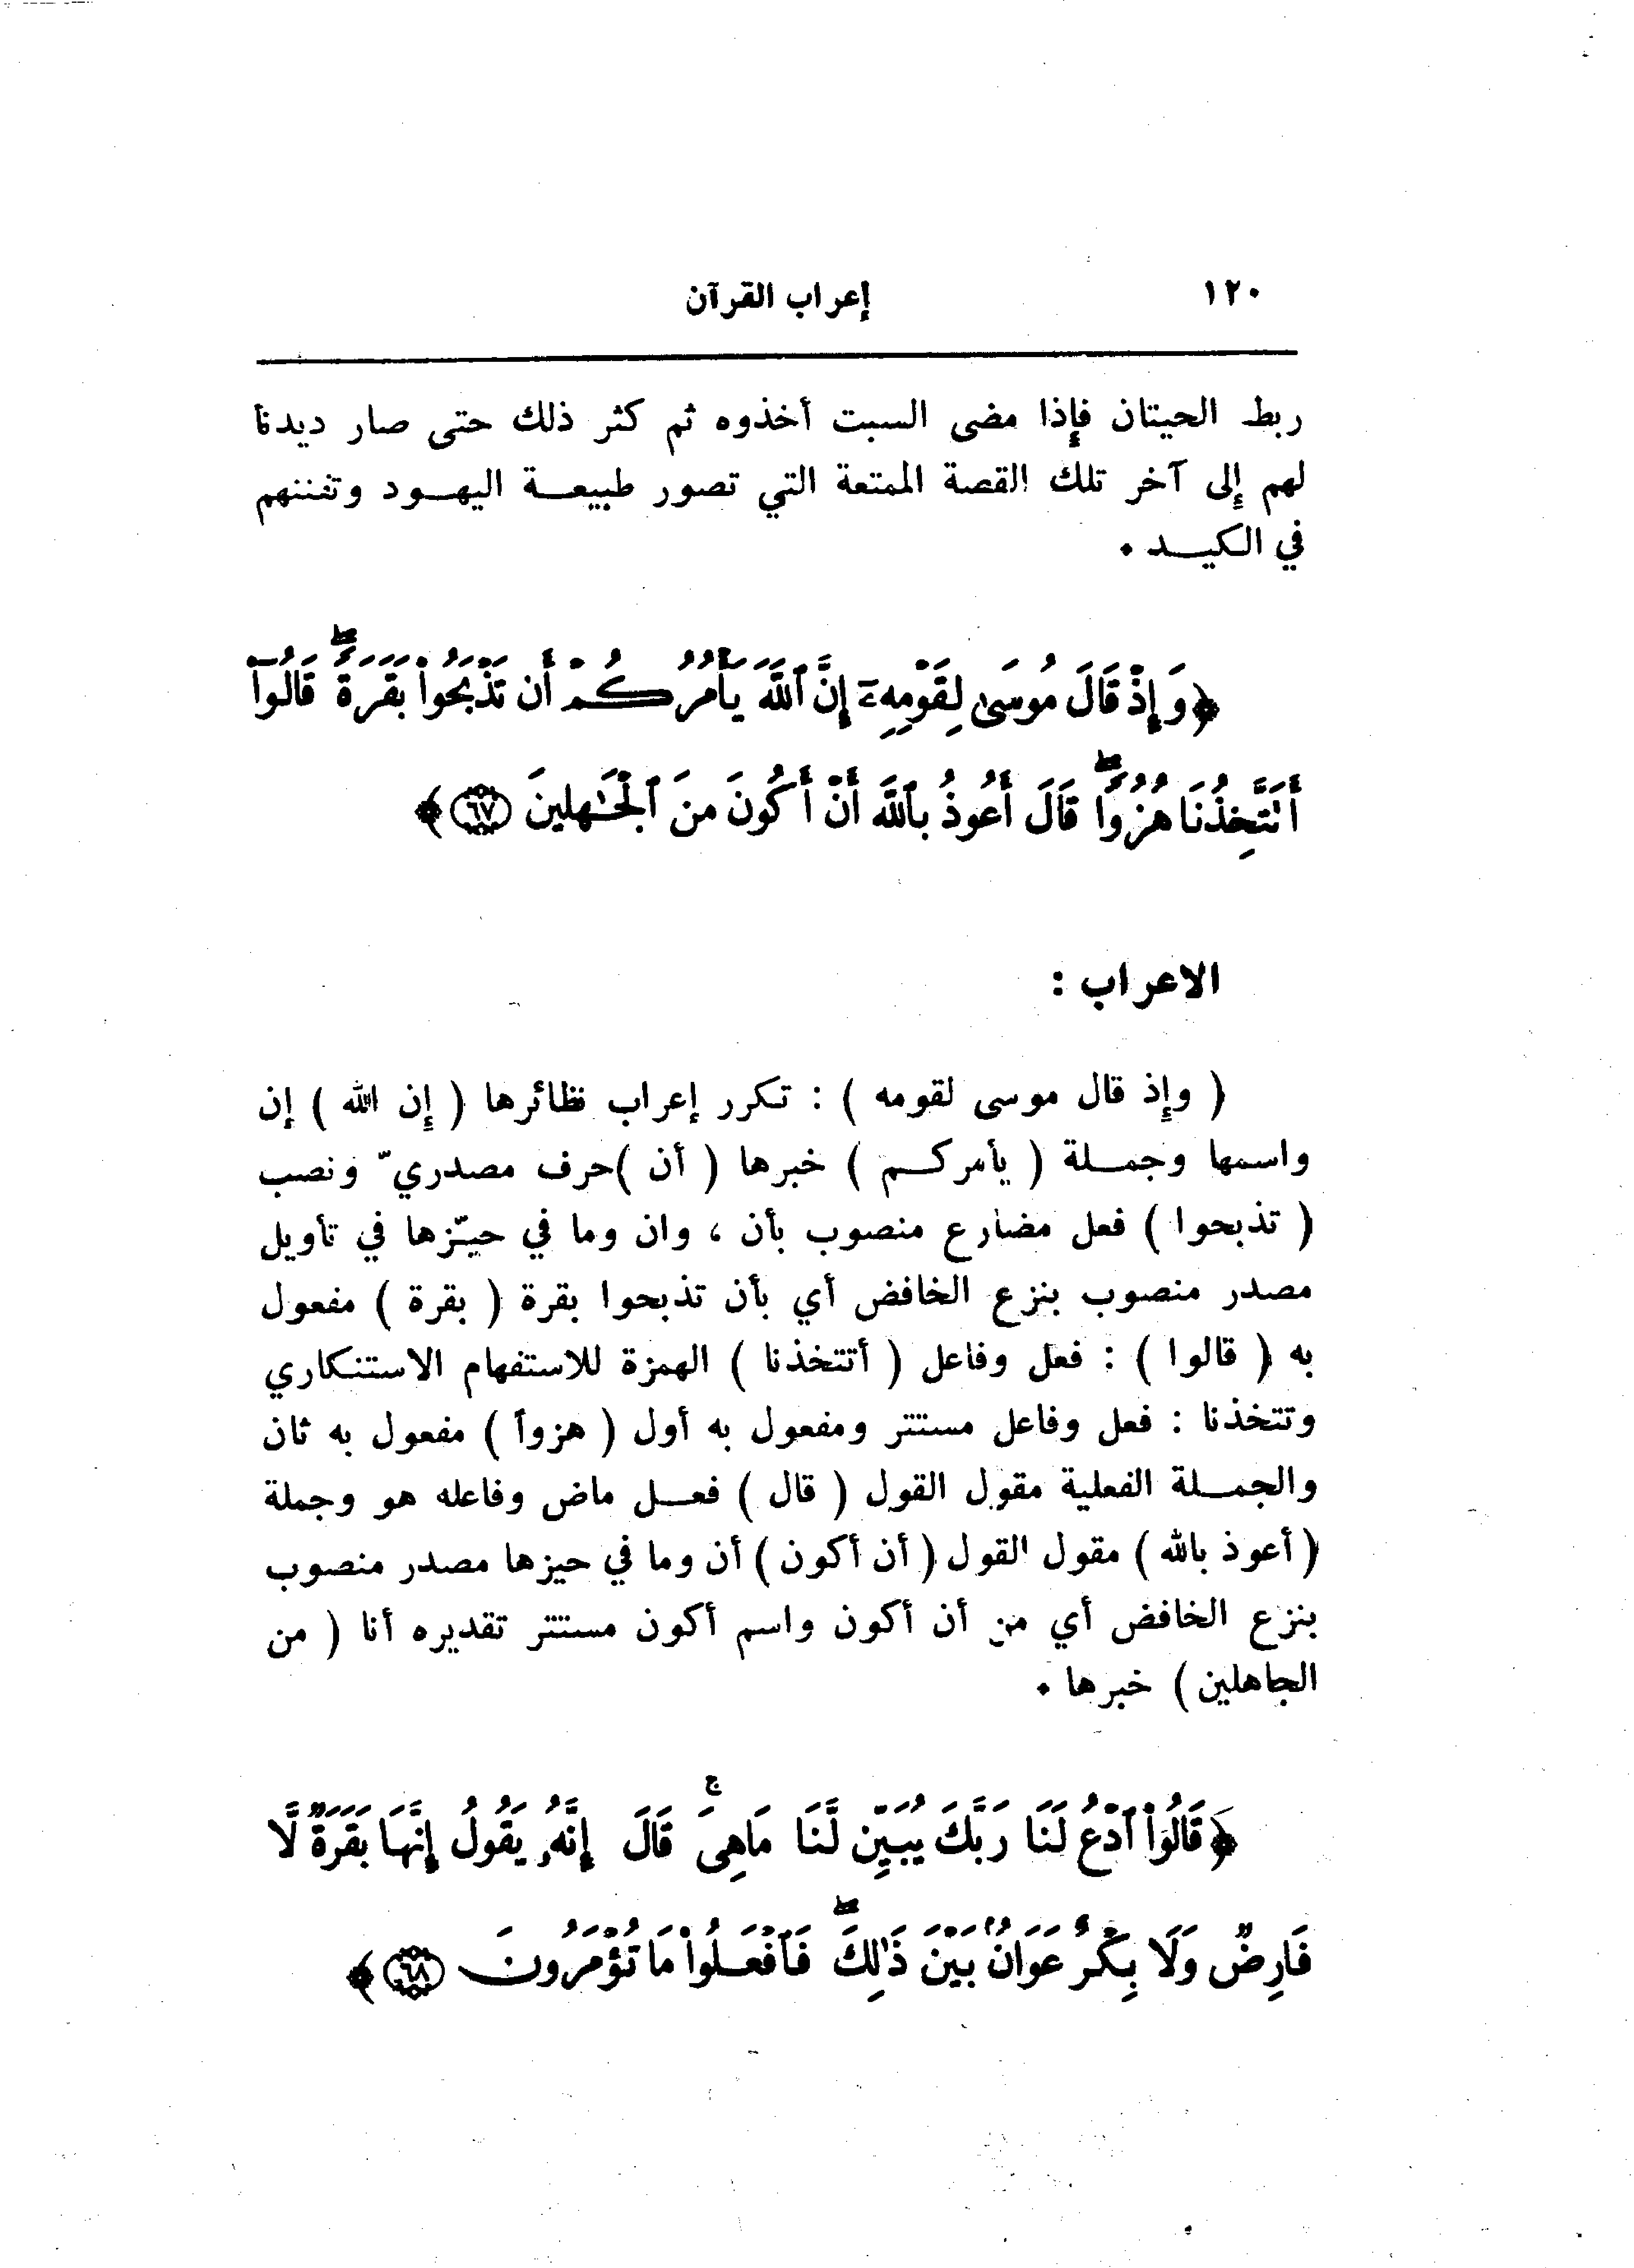 ١٢٠ إعراب القرآن
ربط الحيتان فإذا مضى السبت أخذوه ثم كثر ذلك حتى صار ديدناً
لهم إلى آخر تلك القصة الممتعة التي تصور طبيعـــة اليهــود وتفننهم
في الكيـــد ٠
﴿وَإِذْ قَالَ مُوسَىٰ لِقَوْمِهِۦٓ إِنَّ ٱللَّهَ يَأْمُرُكُمْ أَن تَذْبَحُوا۟ بَقَرَةً ۖ قَالُوٓا۟
أَتَتَّخِذُنَا هُزُوًا ۖ قَالَ أَعُوذُ بِٱللَّهِ أَنْ أَكُونَ مِنَ ٱلْجَٰهِلِينَ ٦٧﴾
الاعراب :
( وإذ قال موسى لقومه ) : تكرر إعراب نظائرها ( إن الله ) إن
واسمها وجمــلة ( يأمركــم ) خبرها ( أن )حرف مصدريّ ونصب
( تذبحوا ) فعل مضارع منصوب بأن ، وان وما في حيـّزها في تأويل
مصدر منصوب بنزع الخافض أي بأن تذبحوا بقرة ( بقرة ) مفعول
به ( قالوا ) : فعل وفاعل ( أتتخذنا ) الهمزة للاستفهام الاستنكاري
وتتخذنا : فعل وفاعل مستتر ومفعول به أول ( هزواً ) مفعول به ثان
والجمــلة الفعلية مقول القول ( قال ) فعــل ماض وفاعله هو وجملة
( أعوذ بالله ) مقول القول ( أن أكون ) أن وما في حيزها مصدر منصوب
بنزع الخافض أي من أن أكون واسم أكون مستتر تقديره أنا ( من
الجاهلين ) خبرها ٠
﴿قَالُوا۟ ٱدْعُ لَنَا رَبَّكَ يُبَيِّن لَّنَا مَا هِىَ ۚ قَالَ إِنَّهُۥ يَقُولُ إِنَّهَا بَقَرَةٌ لَّا
فَارِضٌ وَلَا بِكْرٌ عَوَانٌۢ بَيْنَ ذَٰلِكَ ۖ فَٱفْعَلُوا۟ مَا تُؤْمَرُونَ ٦٨﴾